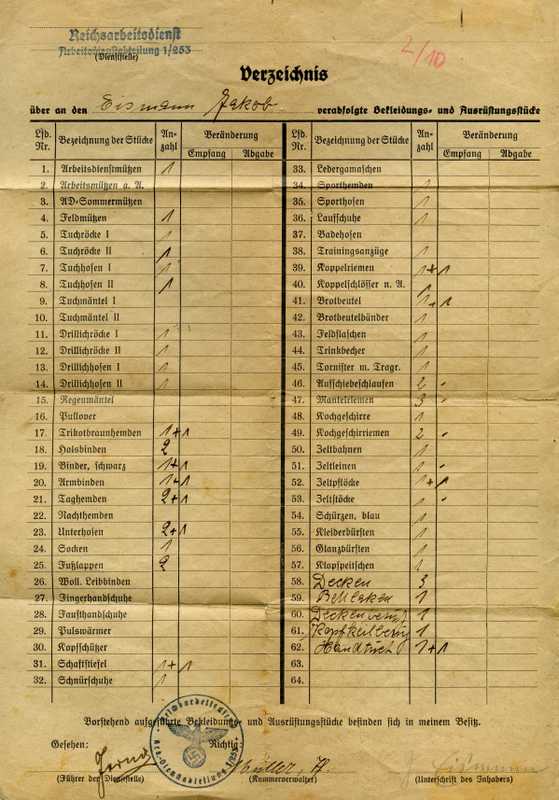 Reichsarbeitsdienst
Arbeitsdienstabteilung 1/253
(Dienststelle)
2/10
Verzeichnis
über an den Eismann Jakob verabfolgte Bekleidungs- und Ausrüstungsstücke
Lfd. Nr. Bezeichnung der Stücke An-zahl Veränderung Empfang Abgabe Lfd. Nr. Bezeichnung der Stücke An-zahl Veränderung Empfang Abgabe
1. Arbeitsdienstmützen 1 33. Ledergamaschen
2. Arbeitsmützen a. A. 34. Sporthemden 1
3. AD-Sommermützen 35. Sporthosen 1
4. Feldmützen 1 36. Laufschuhe 1
5. Tuchröcke I 1 37. Badehosen
6. Tuchröcke II 1 38. Trainingsanzüge 1
7. Tuchhosen I 1 39. Koppelriemen 1+1
8. Tuchhosen II 1 40. Koppelschlösser n. A. 1
9. Tuchmäntel I 41. Brotbeutel 1+1
10. Tuchmäntel II 42. Brotbeutelbänder 1
11. Drillichröcke I 1 43. Feldflaschen 1
12. Drillichröcke II 1 44. Trinkbecher 1
13. Drillichhosen I 1 45. Tornister m. Tragr. 1
14. Drillichhosen II 1 46. Aufschiebeschlaufen 2
15. Regenmäntel 47. Mantelriemen 3
16. Pullover 48. Kochgeschirre 1
17. Trikotbraunhemden 1+1 49. Kochgeschirriemen 2
18. Halsbinden 2 50. Zeltbahnen 1
19. Binder, schwarz 1+1 51. Zeltleinen 1
20. Armbinden 1+1 52. Zeltpflöcke 1+1
21. Taghemden 2+1 53. Zeltstöcke 1
22. Nachthemden 54. Schürzen, blau 1
23. Unterhosen 2+1 55. Kleiderbürsten 1
24. Socken 1 56. Glanzbürsten 1
25. Fußlappen 2 57. Klopfpeitschen 1
26. Woll. Leibbinden 58. Decken 3
27. Fingerhandschuhe 59. Bettlaken 1
28. Fausthandschuhe 60. 1
29. Pulswärmer 61. 1
30. Kopfschützer 62. Handtuch 1+1
31. Schaftstiefel 1+1 63.
32. Schnürschuhe 1 64.
Vorstehend aufgeführte Bekleidungs- und Ausrüstungsstücke befinden sich in meinem Besitz.
Gesehen: Richtig
Müller, A. Eismann
(Führer der Dienststelle) (Kammerverwalter) (Unterschrift des Inhabers)